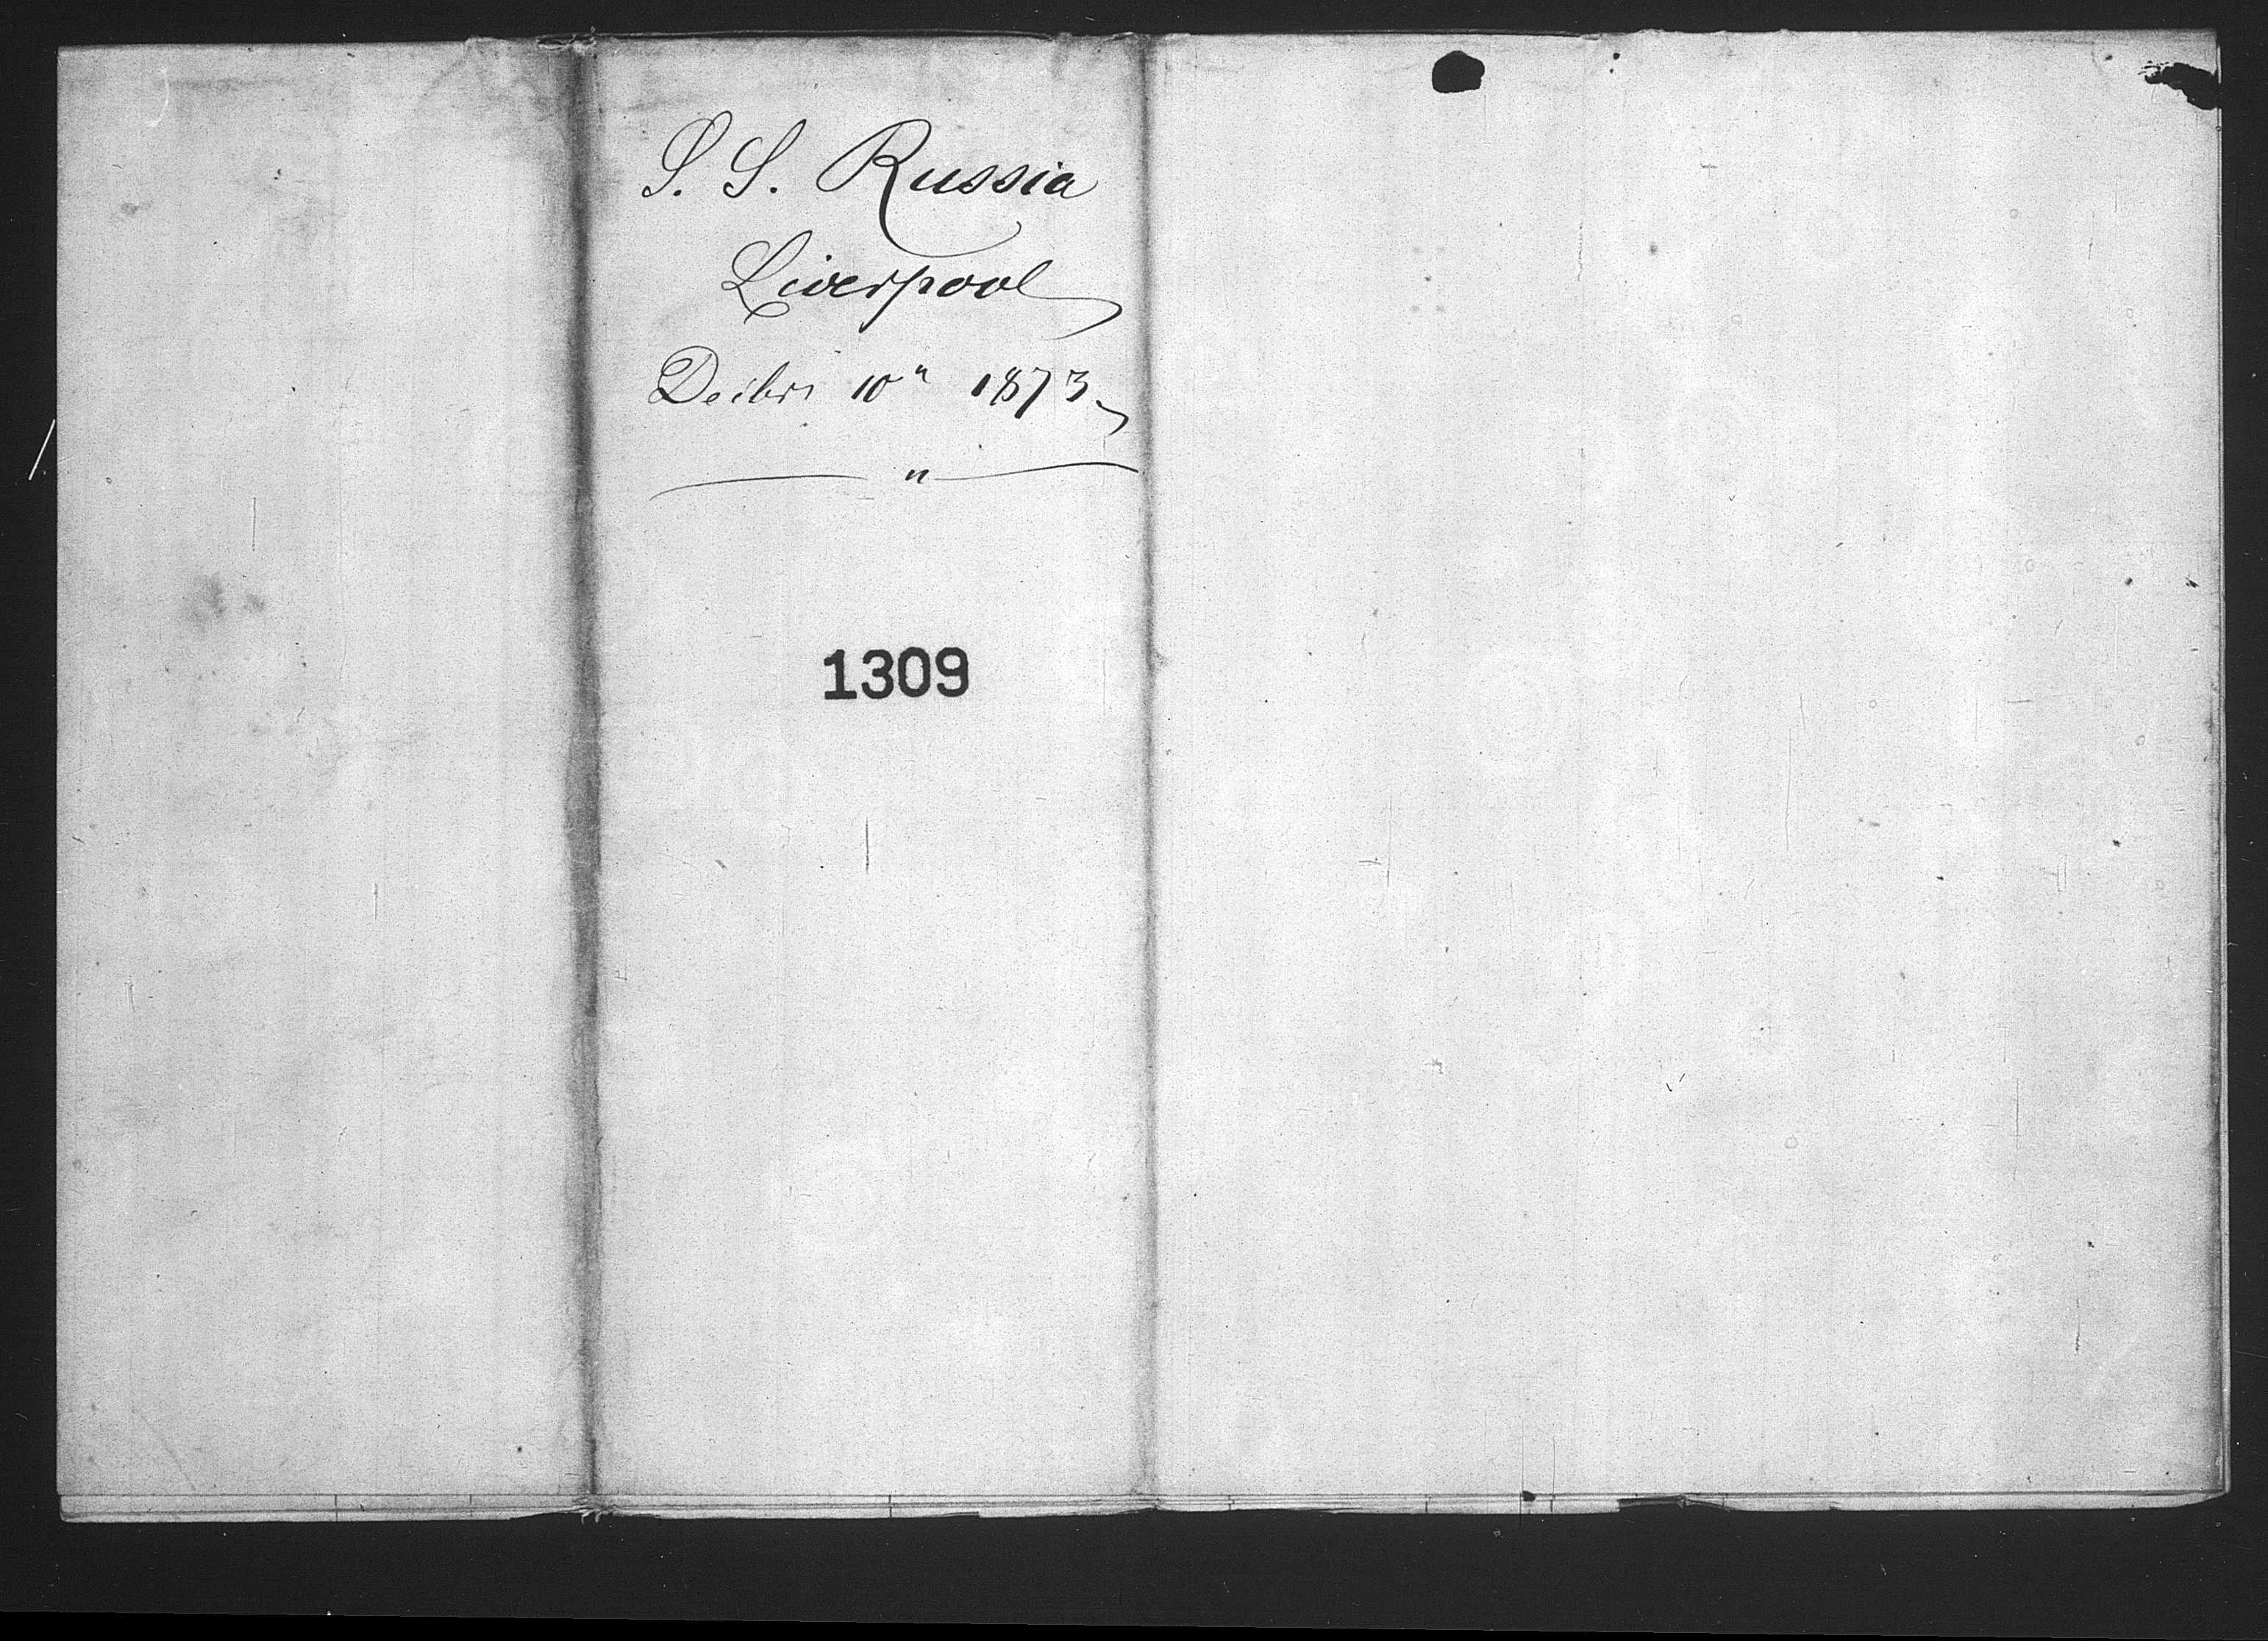 S. S. Russia
Liverpool
Decbr 10" 1873
"
1309